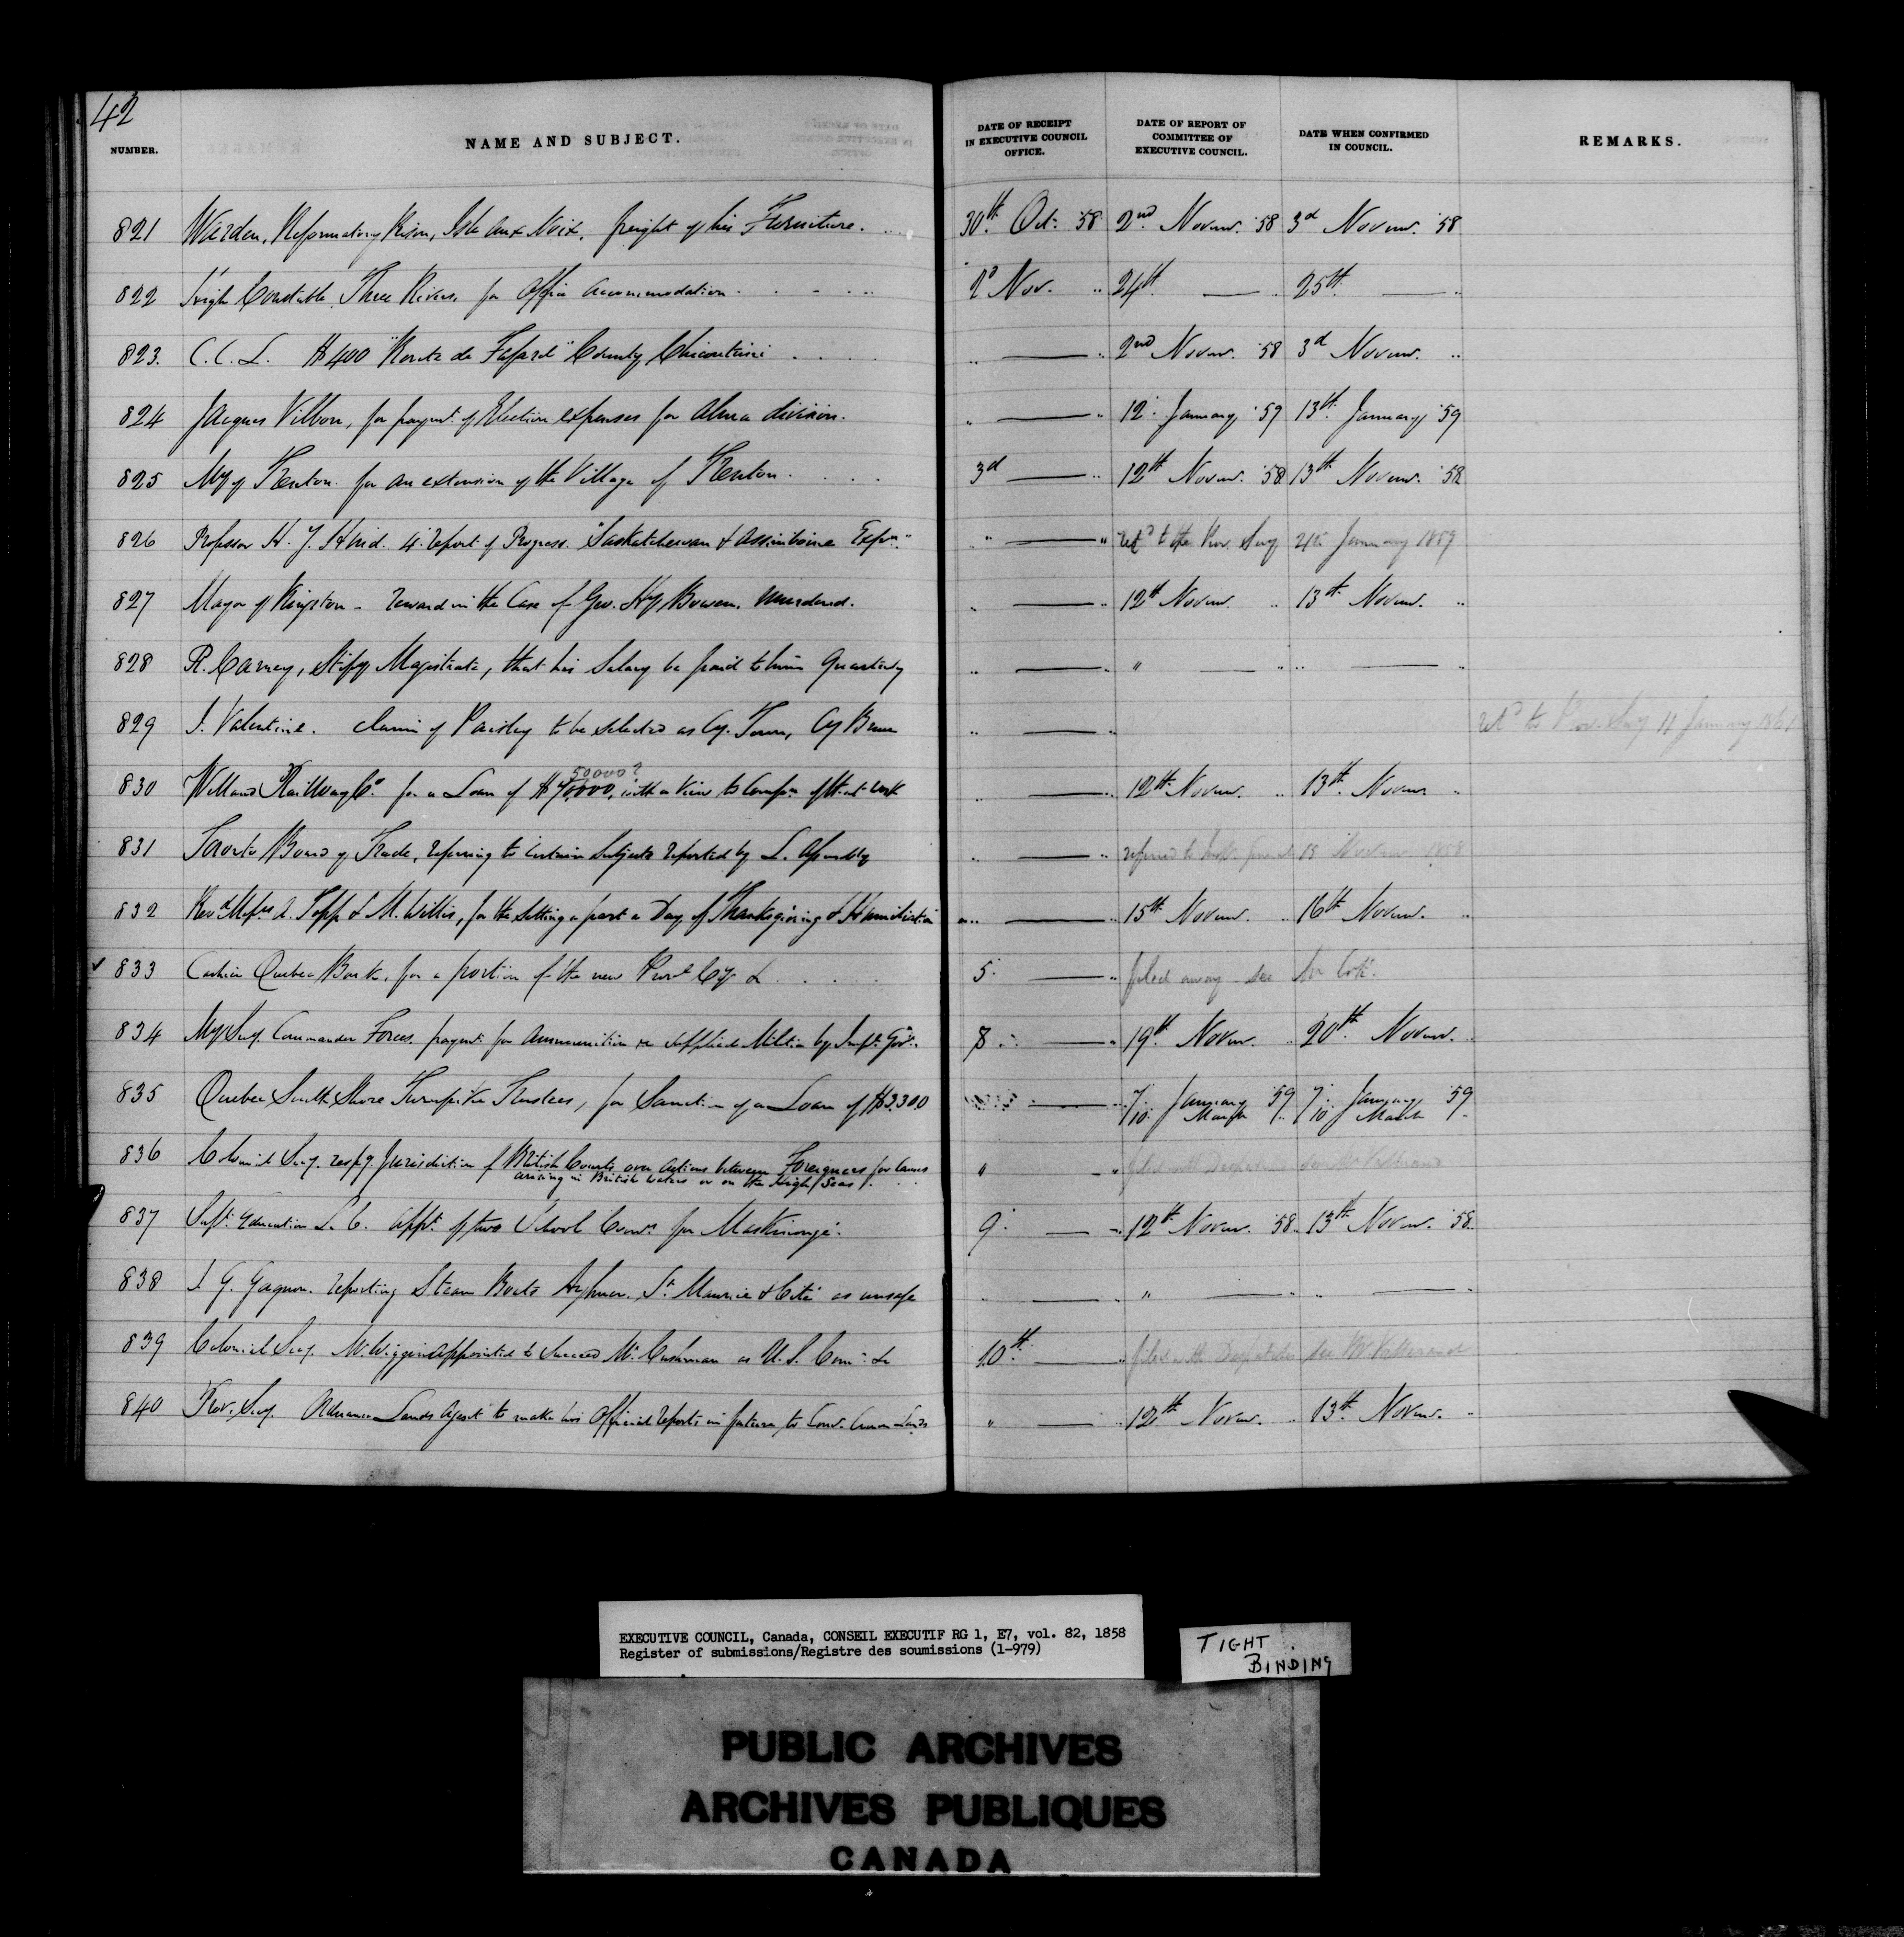 42
NUMBER. NAME AND SUBJECT. DATE OF RECEIPT IN EXECUTIVE COUNCIL OFFICE. DATE OF REPORT OF COMMITTEE OF EXECUTIVE COUNCIL. DATE WHEN CONFIRMED IN COUNCIL. REMARKS.
821 Warden, Reformatory Prison, Isle aux Noix, freight of his Furniture. 30th Oct: '58 2nd Novem. '58 3d Novem. '58
822 High Constable, Three Rivers, for Office Accommodation 2d Nov. " 24th — " 25th — "
823. C. C. L. $400 "Route de " County Chicoutimi " — " 2nd Novem. '58 3d Novem. "
824 Jacques Villbon, for paymt. of Election expenses for Alma division. " — " 12 January '59 13th January '59
825 My of Trenton for an extension of the Village of Trenton. 3d — " 12th Novem. '58 13th Novem. '58
826 Professor H. Y. Hind. 4. report of Progress. "Saskatchewan & Assiniboine Expn." " — " retd to the Prov. Secy 24th January 1859
827 Mayor of Kingston - reward in the Case of Geo. Hy Bowen, Murdered. " — " 12th Novem. " 13th Novem. "
828 R. Carney, Stipy Magistrate, that his Salary be paid to him Quarterly " — " " — " " — "
829 J. Valentine. claim of Paisley to be selected as Cy. Town, Cy Bruce " — " retd to Prov. Secy 11 January 1861
830 Welland Railway Co. for a Loan of $70,000, 50000? with a view to Compn of that work " — " 12th Novem. " 13th Novem "
831 Toronto Board of Trade, referring to certain Subjects reported by L. Assembly " — " referred to 15 Novem 1858
832 Revd Messrs A. Topp & M. Willis, for the setting apart a Day of Thanksgiving & Humiliation " — " 15th Novem. " 16th Novem. "
833 Cashier Quebec Bank, for a portion of the new Provl Cy & 5. — " filed away - see Mr Coté.
834 My Secy. Commander Forces, paymt. for Ammunition &c supplied Militia by Impl. Govt. 8 — " 19th Novem. " 20th Novem. "
835 Quebec South Shore Turnpike Trustees, for Sanction of a Loan of $3,300 — " 7 January '59 7 January '59
10 March " 10 March "
836 Colonial Secy. respg Jurisdiction of British Courts over Actions between Foreigners for Causes
arising in British Waters or on the high Seas. " — " filed with Despatches see Mr
837 Supt. Education L. C. appt. of two School Comrs for Maskinongé. 9. — " 12th Novem. '58. 13th Novem. '58.
838 J. G. Gagnon. reporting Steam Boats St. Maurice & Cité as unsafe " — " " — " " — "
839 Colonial Secy. Mr. Wiggin appointed to succeed Mr. Cushman as U. S. Comr. &c 10th — " filed with Despatches see Mr
840 Prov. Secy. Lands Agent to make his Official reports in future to Comr. Crown Lands " — " 12th Novem. " 13th Novem. "
EXECUTIVE COUNCIL, Canada, CONSEIL EXECUTIF RG 1, E7, vol. 82, 1858
Register of submissions/Registre des soumissions (1-979)
TIGHT
BINDING
PUBLIC ARCHIVES
ARCHIVES PUBLIQUES
CANADA